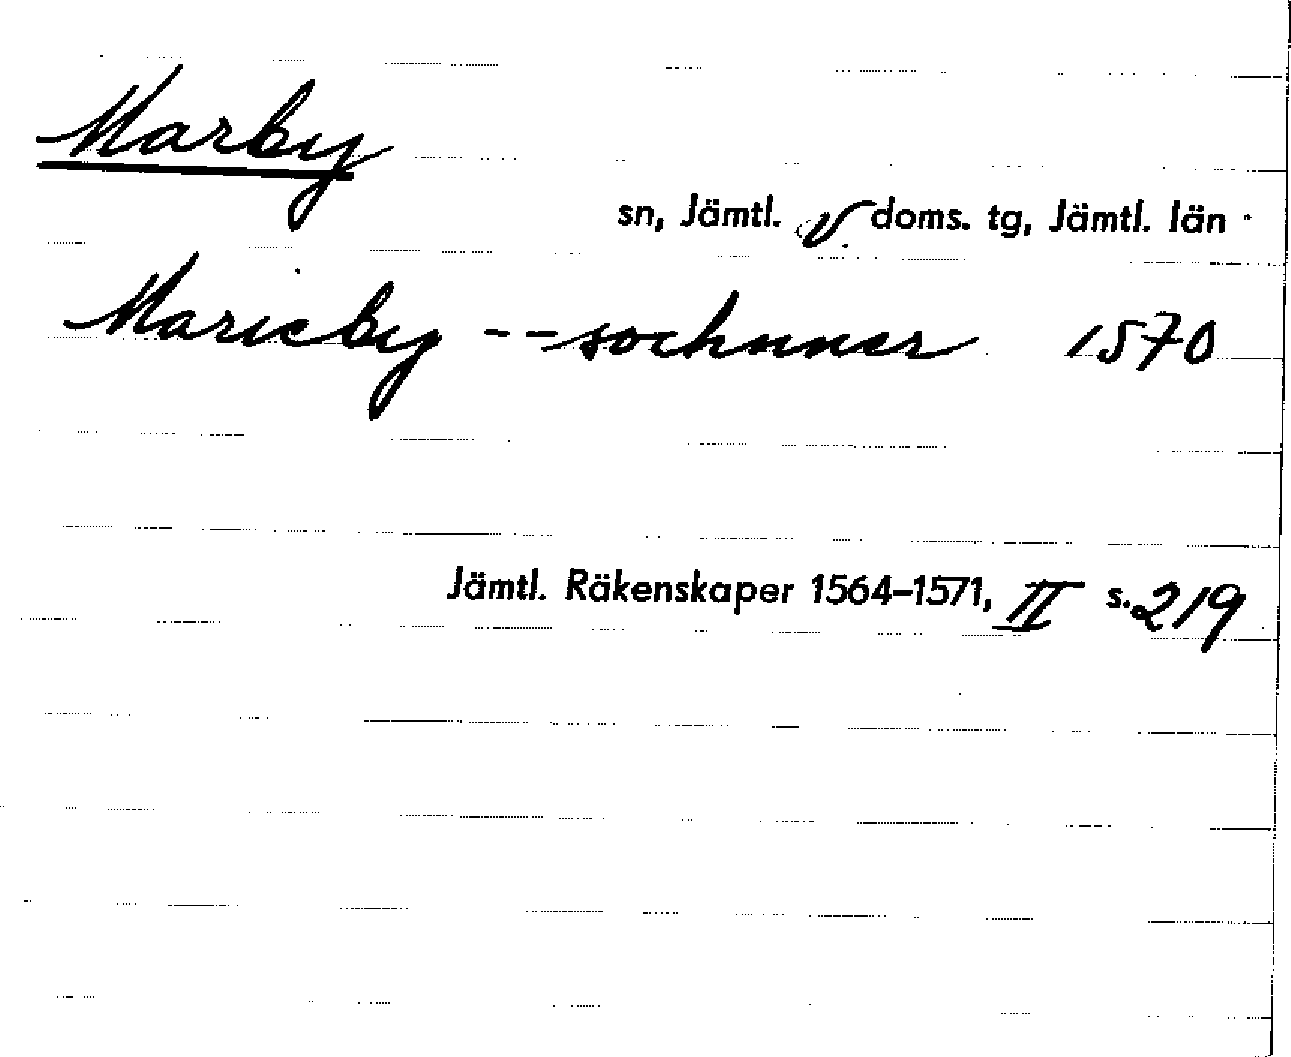 Marby
sn, Jämtl. v doms. tg, Jämtl. län
Marieby -- sochnner 1570
Jämtl. Räkenskaper 1564–1571, II s. 219